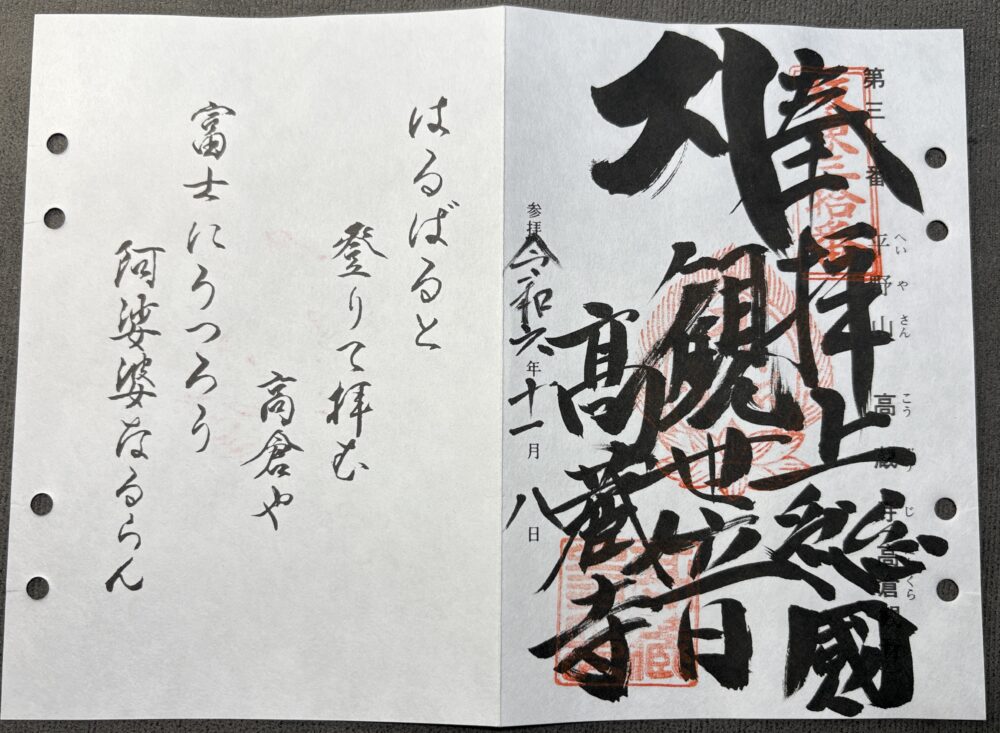 第三十番
平野山
へいやさん
高蔵寺
こう
じ
高倉観
くら
坂東三拾番
奉拝
上総國
大
観世音
高蔵寺
参拝令和六年十一月八日
はるばると
登りて拝む
高倉や
富士にうつろう
阿娑婆なるらん